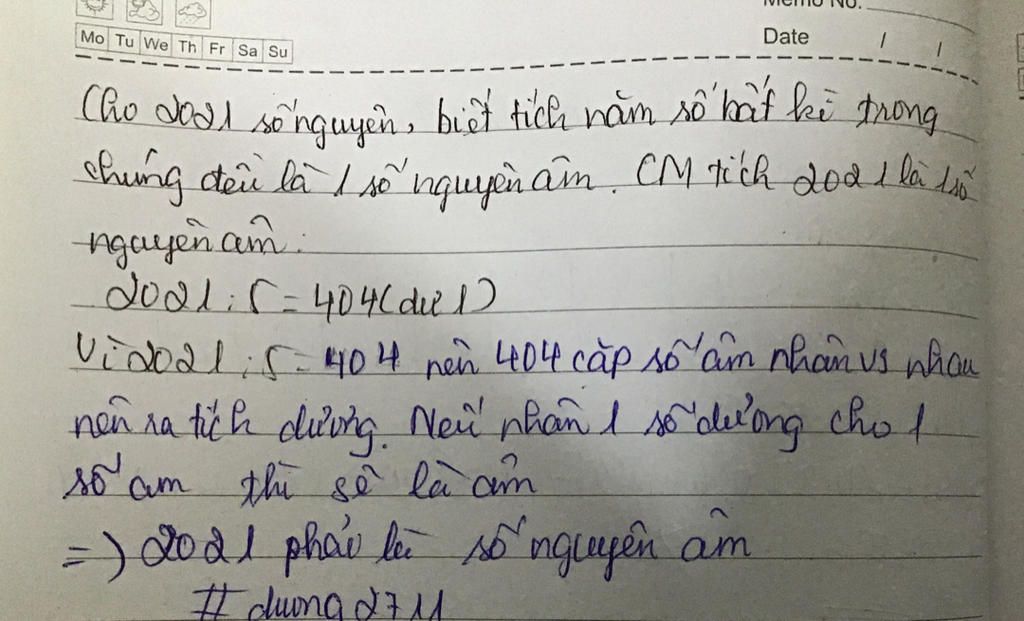 Memo No.
Mo Tu We Th Fr Sa Su
Date / /
Cho 2021 số nguyên, biết tích năm số bất kì trong
chúng đều là 1 số nguyên âm. CM tích 2021 là 1 số
nguyên âm.
2021 : 5 = 404 (dư 1)
Vì 2021 : 5 = 404 nên 404 cặp số âm nhân vs nhau
nên ra tích dương. Nếu nhân 1 số dương cho 1
số am thì sẽ là âm
=> 2021 phải là số nguyên âm
# duong 2711